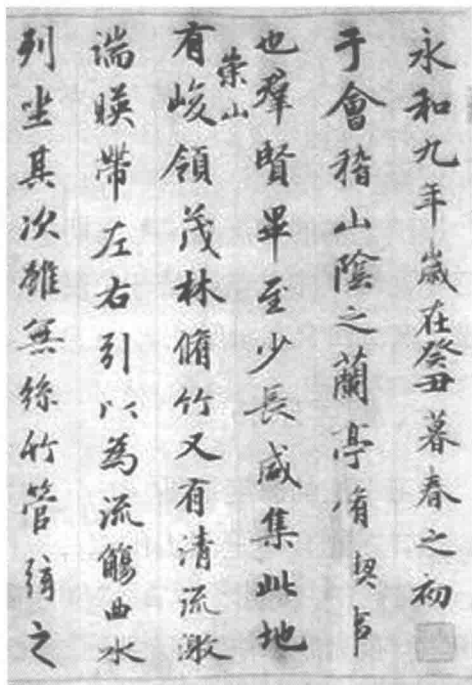 永和九年歲在癸丑暮春之初
于會稽山陰之蘭亭脩禊事
也羣賢畢至少長咸集此地
有崇山峻領茂林脩竹又有清流激
湍暎帶左右引以為流觴曲水
列坐其次雖無絲竹管絃之